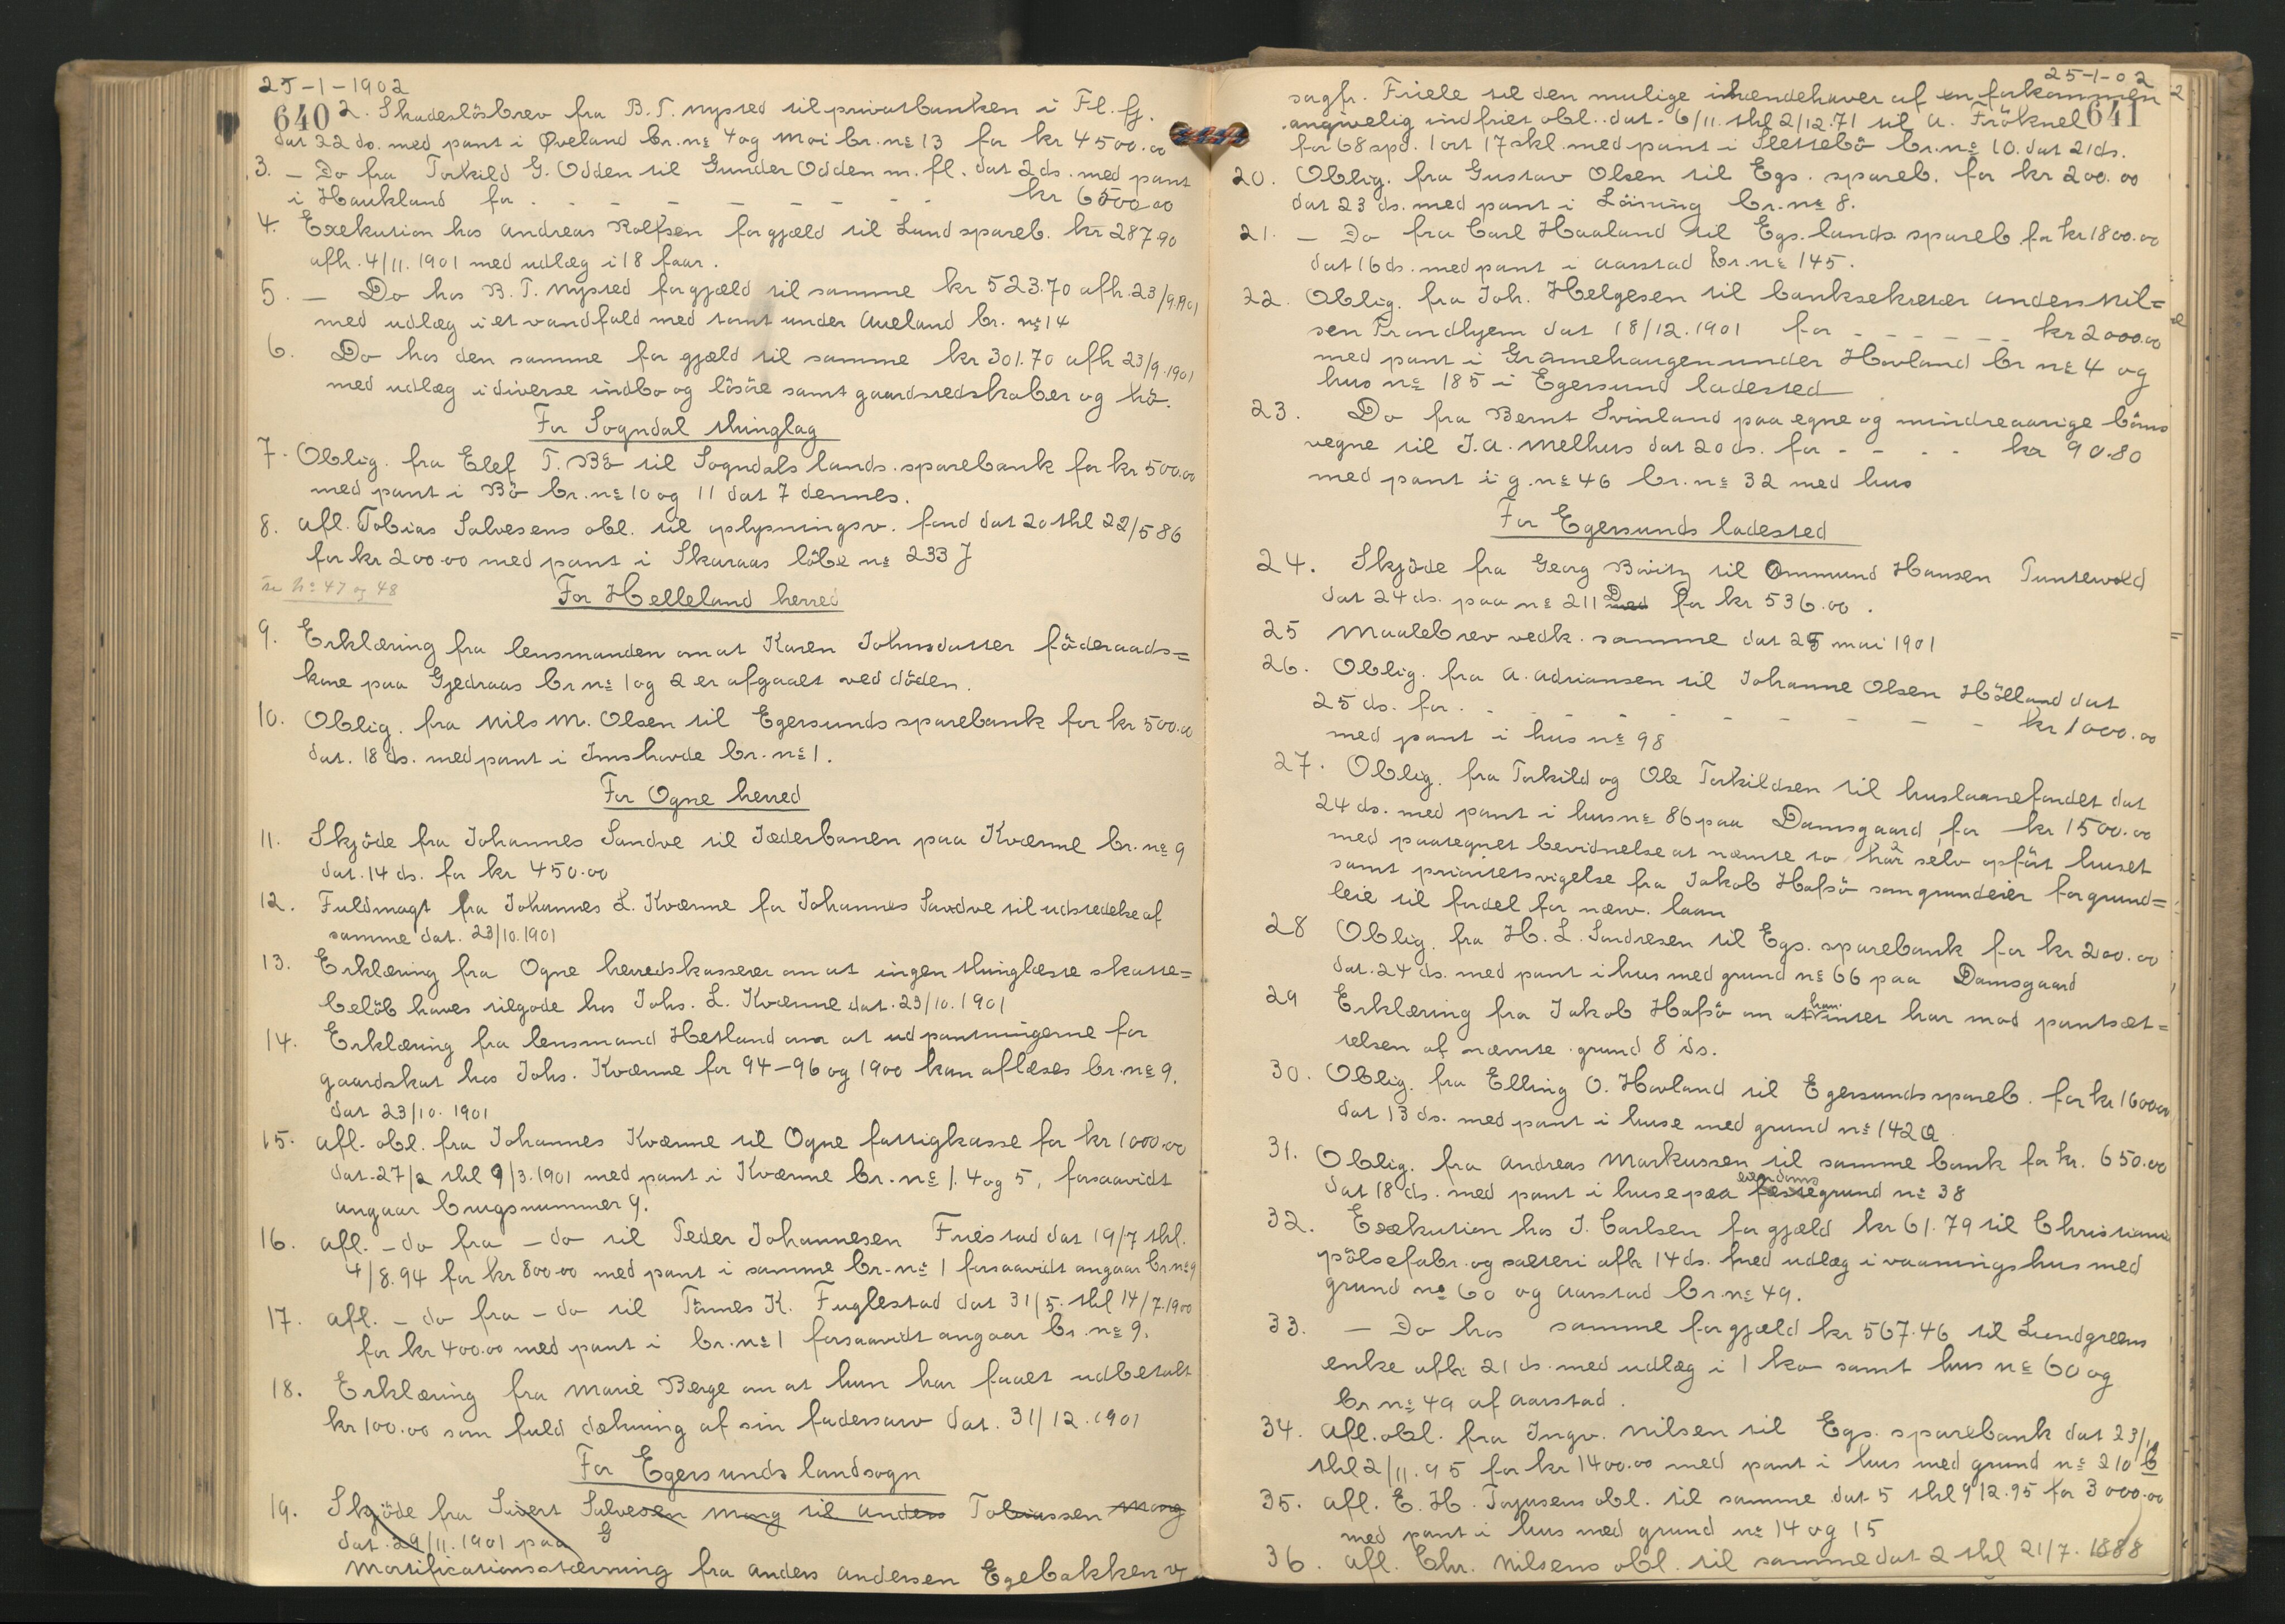 25-1-1902
640 2. Skadeslösbrev fra B. T. Nysted til privatbanken i Fl. fj.
dat 22 ds. med pant i Øveland br. nº 4 og Moi br. nº 13 for kr 4500.00
3. - Do fra Torkild G. Odden til Gunder Odden m. fl. dat 2 ds. med pant
i Haukland for - - - - - - - - kr 6500.00
4. Exekution hos Andreas Rolfsen for gjæld til Lund spareb. kr 287.90
afh. 4/11. 1901 med udlæg i 18 faar.
5. - Do hos B. T. Nysted for gjæld til samme kr 523.70 afh. 23/9.1901
med udlæg i et vandfald med tomt under Aueland br. nº 14
6. Do hos den samme for gjæld til samme kr 301.70 afh 23/9.1901
med udlæg i diverse indbo og lösöre samt gaardsredskaber og hö.
For Sogndal thinglag
7. Oblig. fra Elef T. Bö til Sogndals lands. sparebank for kr 500.00
med pant i Bö br. nº 10 og 11 dat 7 dennes.
8. Afl. Tobias Salvesens obl. til oplysningsv. fond dat 20 thl 22/5 86
for kr 200.00 med pant i Skaraas löbe nº 233 J
se nº 47 og 48
For Helleland herred
9. Erklæring fra lensmanden om at Karen Johnsdatter föderaads=
kone paa Gjedraas br nº 1 og 2 er afgaaet ved döden.
10. Oblig. fra Nils M. Olsen til Egersunds sparebank for kr 500.00
dat. 18 ds. med pant i Imshovde br. nº 1.
For Ogne herred
11. Skjöde fra Johannes Sandve til Jæderbanen paa Kvænne br. nº 9
dat. 14 ds. for kr 450.00
12. Fuldmagt fra Johannes L. Kvænne for Johannes Sandve til udstedelse af
samme dat. 23/10. 1901
13. Erklæring fra Ogne herredskasserer om at ingen thinglæste skatte=
belöb haves tilgode hos Johs. L. Kvænne dat. 23/10. 1901
14. Erklæring fra lensmand Hetland om at udpantningerne for
gaardskat hos Johs. Kvænne for 94-96 og 1900 kan aflæses br. nº 9.
dat 23/10. 1901
15. Afl. obl. fra Johannes Kvænne til Ogne fattigkasse for kr 1000.00
dat. 27/2 thl 9/3. 1901 med pant i Kvænne br. nº 1. 4 og 5, forsaavidt
angaar brugsnummer 9.
16. Afl. - do fra - do til Peder Johannesen Friestad dat 19/7 thl.
4/8. 94 for kr 800.00 med pant i samme br. nº 1 forsaavidt angaar br. nº 9
17. Afl. - do fra - do til Tönnes K. Fuglestad dat 31/5. thl 14/7.1900
for kr 400.00 med pant i br. nº 1 forsaavidt angaar br. nº 9.
18. Erklæring fra Marie Berge om at hun har faaet udbetalt
kr 100.00 som fuld dækning af sin fadersarv dat. 31/12. 1901
For Egersunds landsogn
19. Skjöde fra Sivert Salvesen Mong til Anders Tobiassen Mong
dat. 29/11. 1901 paa G
Mortificationsstævning fra Anders Andersen Egebakken v/
25-1-02
sagfr. Friele til den mulige ihændehaver af en forkommen
641
angivelig indfriet obl. dat. 6/11. thl 2/12.71 til A. Fröknel
for 68 spd. 1 ort 17 skl. med pant i Slettebö br. nº 10. dat 21 ds.
20. Oblig. fra Gustav Olsen til Egs. spareb. for kr 200.00
dat 23 ds. med pant i Löining br. nº 8.
21. - Do fra Carl Haaland til Egs. lands spareb for kr 1800.00
dat 16 ds. med pant i Aarstad br. nº 145.
22. Oblig. fra Joh. Helgesen til banksekretær Anders Nil=
sen Trondhjem dat 18/12. 1901 for - - - - - kr 2000.00
med pant i Grönehaugen under Hovland br nº 4 og
hus nº 185 i Egersund ladested
23. Do fra Bernt Svinland paa egne og mindreaarige börns
vegne til J. A. Melhus dat 20 ds. for - - - - kr 90.80
med pant i g. nº 46 br. nº 32 med hus
For Egersunds ladested
24. Skjöde fra Georg Bövitz til Ommund Hansen Puntervold
dat 24 ds. paa nº 211 D for kr 536.00.
25 Maalebrev vedk. samme dat 25 mai 1901
26. Oblig. fra A. Adriansen til Johanne Olsen Hölland dat
25 ds. for - - - - - - - - kr 1000.00
med pant i hus nº 98
27. Oblig. fra Torkild og Ole Torkildsen til huslaanefondet dat
24 ds. med pant i hus nº 86 paa Damsgaard for kr 1500.00
med paategnet bevidnelse at nævnte to har selv opfört huset
samt prioritetsvigelse fra Jakob Hafsö som grundeier for grund=
leie til fordel for nævn. laan
28 Oblig. fra H. L. Sandresen til Egs. sparebank for kr 200.00
dat. 24 ds. med pant i hus med grund nº 66 paa Damsgaard
29 Erklæring fra Jakob Hafsö om at han intet har mod pantsæt=
telsen af nævnte grund 8 ds.
30. Oblig. fra Elling O. Hovland til Egersunds spareb. for kr 1600.00
dat 13 ds. med pant i huse med grund nº 142 a
31. Oblig. fra Andreas Markussen til samme bank for kr. 650.00
dat 18 ds. med pant i huse paa fæste eiendoms grund nº 38
32. Exekution hos J. Carlsen for gjæld kr 61.79 til Christiania
pölsefabr. og salteri afh 14 ds. med udlæg i vaaningshus med
grund nº 60 og Aarstad br. nº 49.
33. - Do hos samme for gjæld kr 567.46 til Lundgreens
enke afh 21 ds. med udlæg i 1 ko samt hus nº 60 og
br nº 49 af Aarstad.
34. Afl. obl. fra Ingv. Nilsen til Egs. sparebank dat 23/
thl 2/11. 95 for kr 1400.00 med pant i hus med grund nº 210 b
35. Afl. E. H. Torjusens obl. til samme dat 5 thl 9 12.95 for 3000.00
med pant i hus med grund nº 14 og 15
36. Afl. Chr. Nilsens obl. til samme dat 2 thl 21/7. 1888